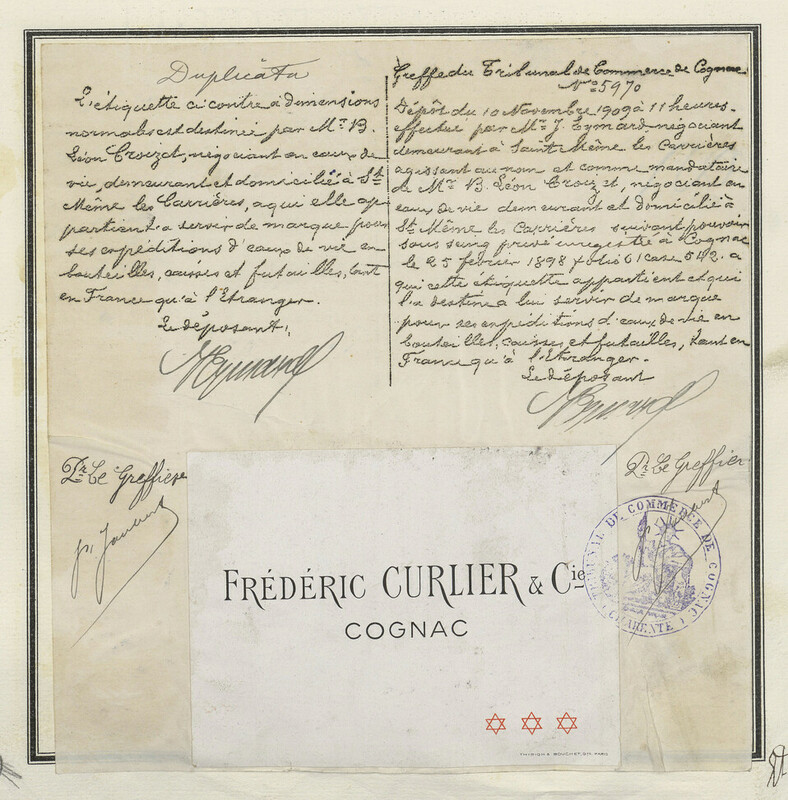 Duplicata
L'étiquette ci contre à dimensions
normales est destinée par Mr. B.
Léon Croizet, négociant en eaux de
vie, demeurant et domicilié à St
Même les Carrières, a qui elle ap
partient a servir de marque pour
ses expéditions d'eaux de vie en
bouteilles, caisses et futailles, tant
en France qu'à l'Etranger.
Le déposant,
Dr Le Greffier
Greffe du Tribunal de Commerce de Cognac
No 5970
Dépôt du 10 Novembre 1909 à 11 heures.
effectué par Mr. J. Eymard négociant
demeurant à Saint Même les Carrières
agissant au nom et comme mandataire
de Mr. B. Léon Croizet, négociant en
eaux de vie demeurant et domicilié à
St Même les Carrières suivant pouvoir
sous seing privé enregistré à Cognac
le 25 février 1898 folio 61 case 542. a
qui cette étiquette appartient et qui
l'a destine a lui servir de marque
pour ses expéditions d'eaux de vie en
bouteilles, caisses et futailles, tant en
France qu'à l'Etranger.
Le déposant
Dr Le Greffier
TRIBUNAL DE COMMERCE DE COGNAC
CHARENTE
FRÉDÉRIC CURLIER & Cie
COGNAC